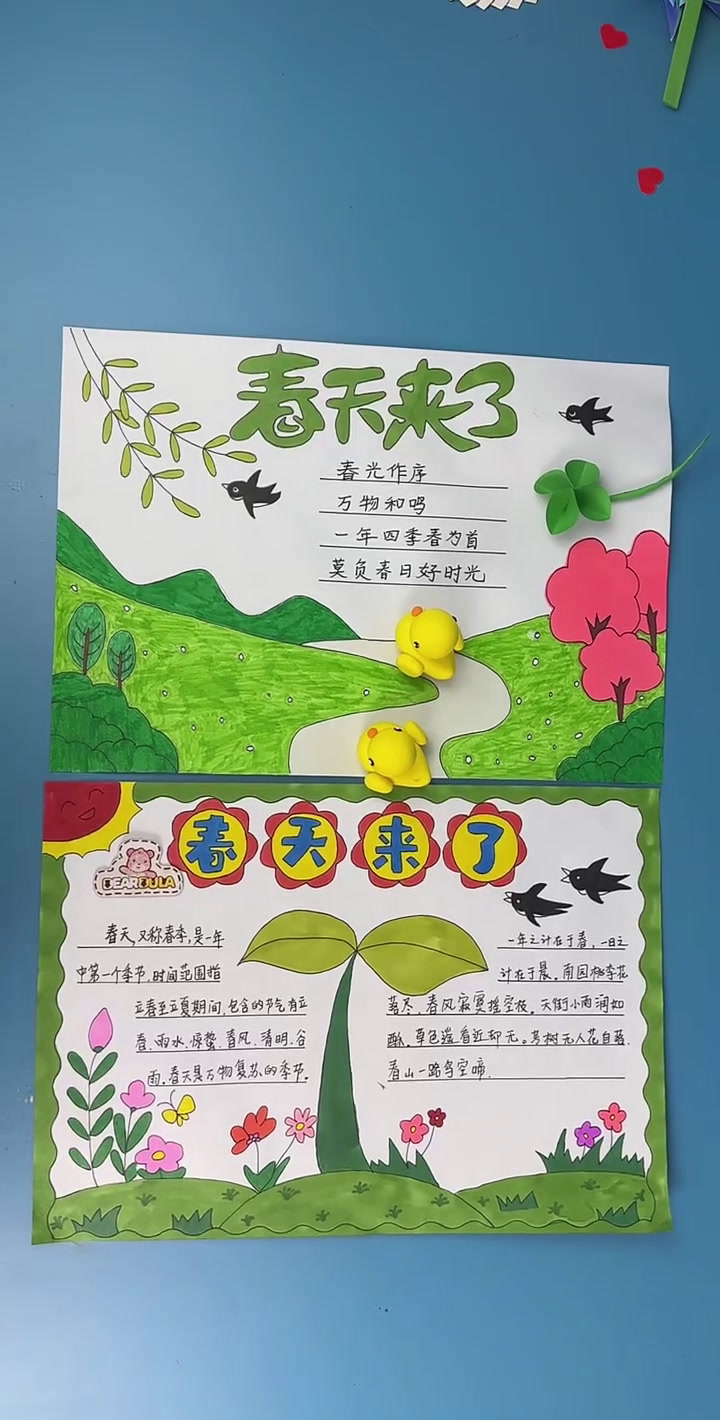 春天来了
春光作序
万物和鸣
一年四季春为首
莫负春日好时光
春天来了
BEARBULA
春天,又称春季,是一年
中第一个季节,时间范围指
立春至立夏期间,包含的节气有立
春、雨水、惊蛰、春风、清明、谷
雨。春天是万物复苏的季节。
一年之计在于春,一日之
计在于晨。南园桃李花
落尽,春风寂寞摇空枝。天街小雨润如
酥,草色遥看近却无。芳树无人花自落
春山一路鸟空啼.